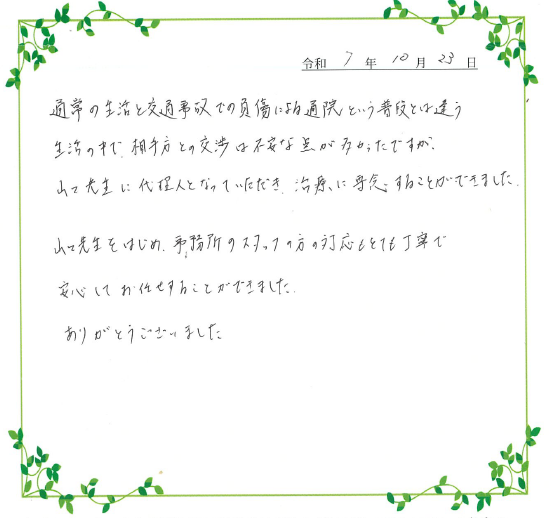 令和 7 年 10 月 23 日
通常の生活と交通事故での負傷による通院という普段とは違う
生活の中で、相手方との交渉は不安な点が多かったですが、
山口先生に代理人となっていただき、治療に専念することができました。
山口先生をはじめ、事務所のスタッフの方の対応もとても丁寧で
安心してお任せすることができました。
ありがとうございました